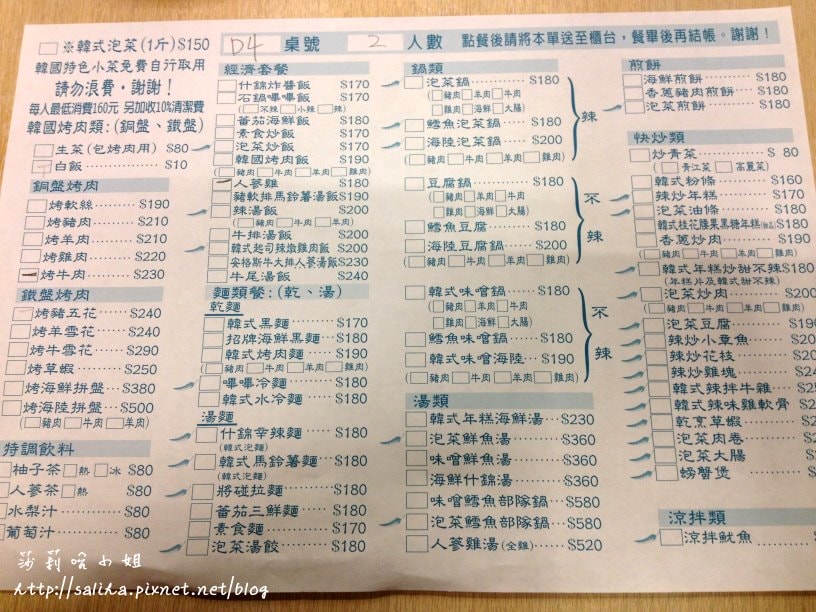 ※韓式泡菜(1斤)$150
韓國特色小菜免費自行取用
請勿浪費，謝謝！
每人最低消費160元 另加收10%清潔費
韓國烤肉類:(銅盤、鐵盤)
生菜(包烤肉用) $80
白飯 $10
銅盤烤肉
烤軟絲 $190
烤豬肉 $210
烤羊肉 $210
烤雞肉 $220
烤牛肉 $230
鐵盤烤肉
烤豬五花 $240
烤羊雪花 $240
烤牛雪花 $290
烤草蝦 $250
烤海鮮拼盤 $380
烤海陸拼盤 $500
(豬肉 牛肉 羊肉)
特調飲料
柚子茶 熱 冰 $80
人蔘茶 熱 $80
水梨汁 $80
葡萄汁 $80
D4 桌號 2 人數 點餐後請將本單送至櫃台，餐畢後再結帳。謝謝！
經濟套餐
什錦炸醬飯 $170
石鍋嗶嗶飯 $170
(不辣 小辣 辣)
蕃茄海鮮飯 $180
素食炒飯 $170
泡菜炒飯 $170
韓國烤肉飯 $190
(豬肉 牛肉 羊肉 雞肉)
人蔘雞 $180
豬軟排馬鈴薯湯飯$190
辣湯飯 $200
(豬肉 牛肉 羊肉)
牛排湯飯 $200
韓式起司辣燉雞肉飯 $200
安格斯牛大排人蔘湯飯$230
牛尾湯飯 $240
麵類餐:(乾、湯)
乾麵
韓式黑麵 $170
招牌海鮮黑麵 $180
韓式烤肉麵 $190
(豬肉 牛肉 羊肉 雞肉)
嗶嗶冷麵 $180
韓式水冷麵 $180
湯麵
什錦辛辣麵 $180
(韓式泡麵)
韓式馬鈴薯麵 $180
(韓式泡麵)
將碰拉麵 $180
蕃茄三鮮麵 $180
素食麵 $170
泡菜湯餃 $180
鍋類
泡菜鍋 $180
(豬肉 羊肉 牛肉
雞肉 海鮮 大腸)
鱈魚泡菜鍋 $180
海陸泡菜鍋 $200
(豬肉 牛肉 羊肉 雞肉)
辣
豆腐鍋 $180
(豬肉 羊肉 牛肉
雞肉 海鮮 大腸)
鱈魚豆腐 $180
海陸豆腐鍋 $200
(豬肉 牛肉 羊肉 雞肉)
不辣
韓式味噌鍋 $180
(豬肉 羊肉 牛肉
雞肉 海鮮 大腸)
鱈魚味噌鍋 $180
韓式味噌海陸 $190
(豬肉 牛肉 羊肉 雞肉)
不辣
湯類
韓式年糕海鮮湯 $230
泡菜鮮魚湯 $360
味噌鮮魚湯 $360
海鮮什錦湯 $360
味噌鱈魚部隊鍋 $580
泡菜鱈魚部隊鍋 $580
人蔘雞湯(全雞) $520
煎餅
海鮮煎餅 $180
香蔥豬肉煎餅 $180
泡菜煎餅 $180
快炒類
炒青菜 $ 80
(青江菜 高麗菜)
韓式粉條 $160
辣炒年糕 $170
泡菜油條 $180
韓式桂花腰果黑糖年糕 $180
香蔥炒肉 $190
(豬肉 牛肉 羊肉 雞肉)
韓式年糕炒甜不辣$180
(年糕片及韓式甜不辣)
泡菜炒肉 $200
(豬肉 牛肉 羊肉 雞肉)
泡菜豆腐 $190
辣炒小章魚
辣炒花枝
辣炒雞塊
韓式辣拌牛雜
韓式辣味雞軟骨
乾烹草蝦
泡菜肉卷
泡菜大腸
螃蟹煲
涼拌類
涼拌魷魚
莎莉啥小姐
http://saliha.pixnet.net/blog